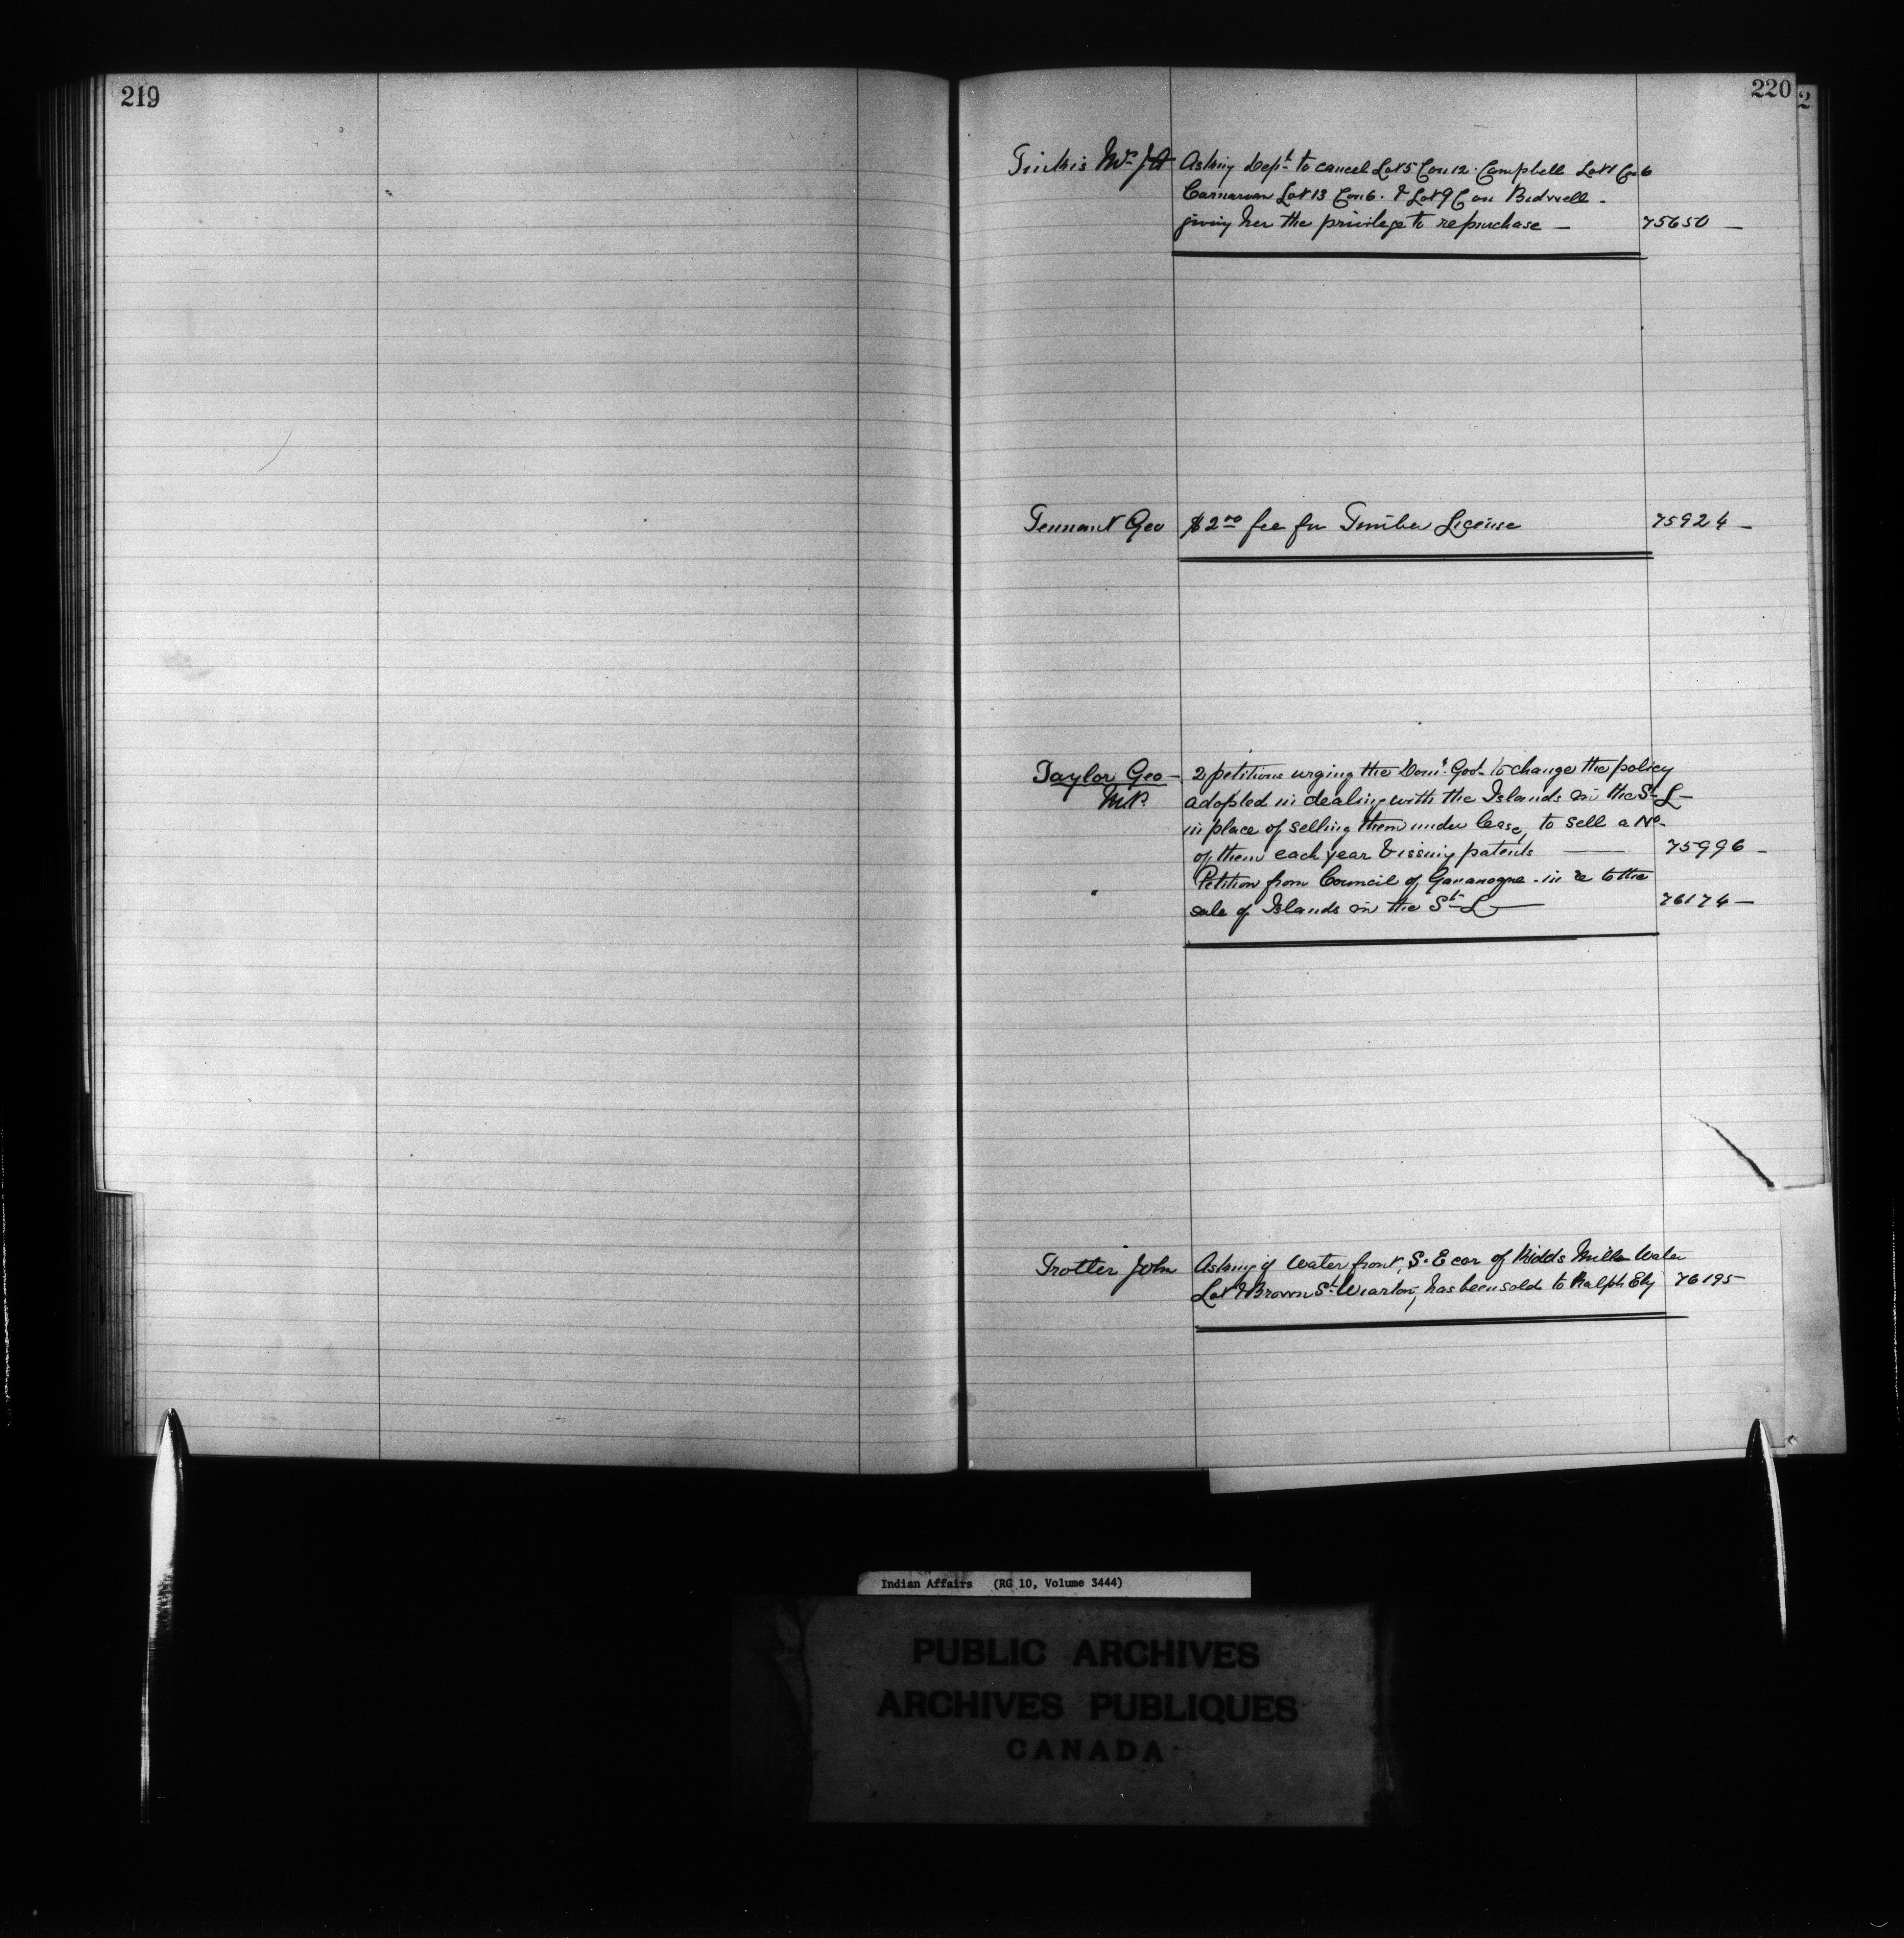 219
220
2
Tinkis Mrs J A Asking Dept to cancel Lot 5 Con 12 Campbell Lot 1 Con 6
Carnarvon Lot 13 Con 6. & Lot 9 Con Bidwell.
giving her the privilege to repurchase — 75650 —
Tennant Geo $2 00 fee for Timber License 75924 —
Taylor Geo — 2 petitions urging the Domn Govt to change the policy
M.P. adopted in dealing with the Islands in the St L —
in place of selling them under lease, to sell a No.
of them each year & issuing patents — 75996 —
Petition from Council of Gananoque in re to the
sale of Islands in the St L — 76174 —
Trotter John Asking if Water front, S. E cor of Kidds Mills Water
Lot & Brown St Wiarton, has been sold to Ralph Ely 76195
Indian Affairs (RG 10, Volume 3444)
PUBLIC ARCHIVES
ARCHIVES PUBLIQUES
CANADA